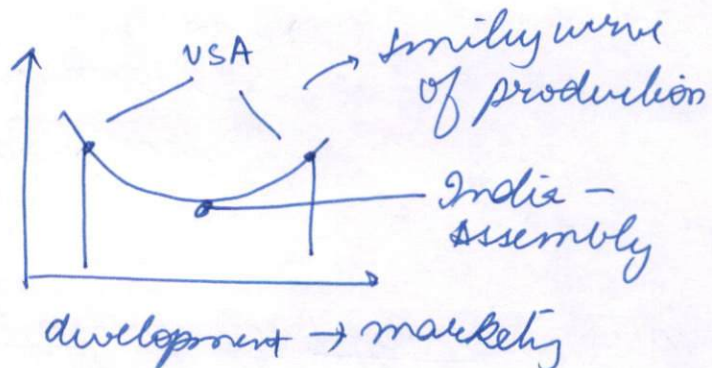 USA
smiley curve
of production
India -
Assembly
development → marketing